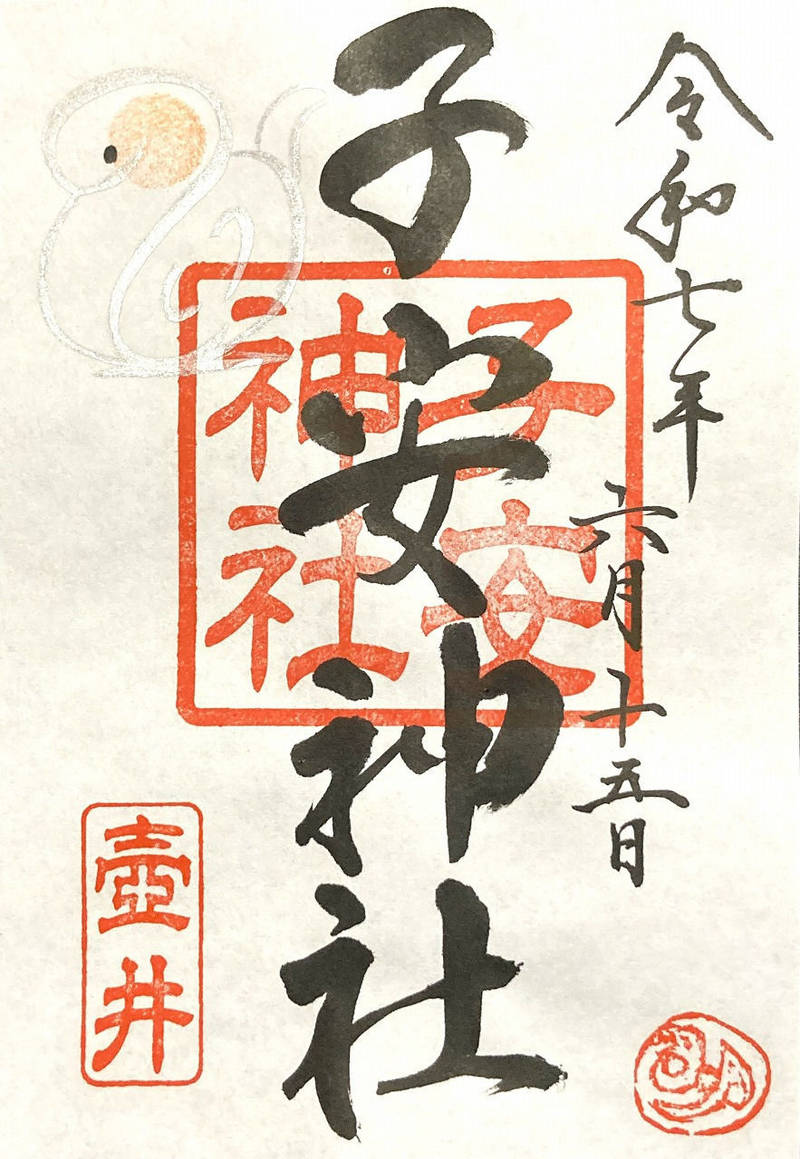 令和七年
六月十五日
子安神社
子安
神社
壺井